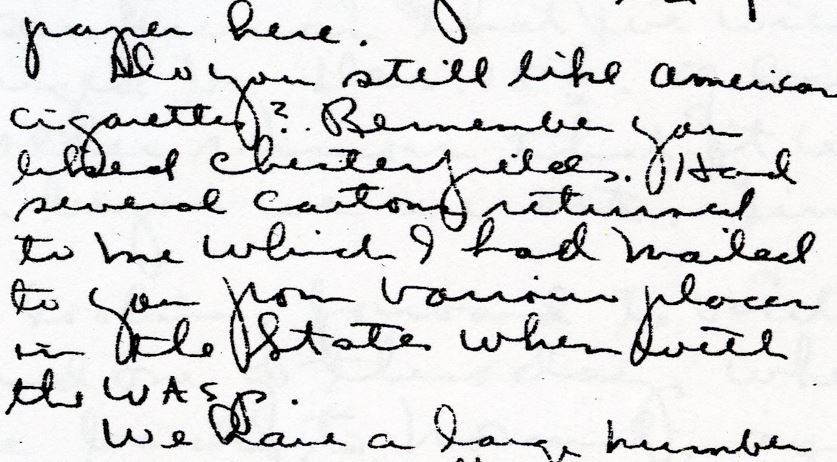 paper here.
Do you still like American
cigarettes? Remember you
liked Chesterfields. Had
several cartons returned
to me which I had mailed
to you from various places
in the States when with
the WASP.
We have a large number